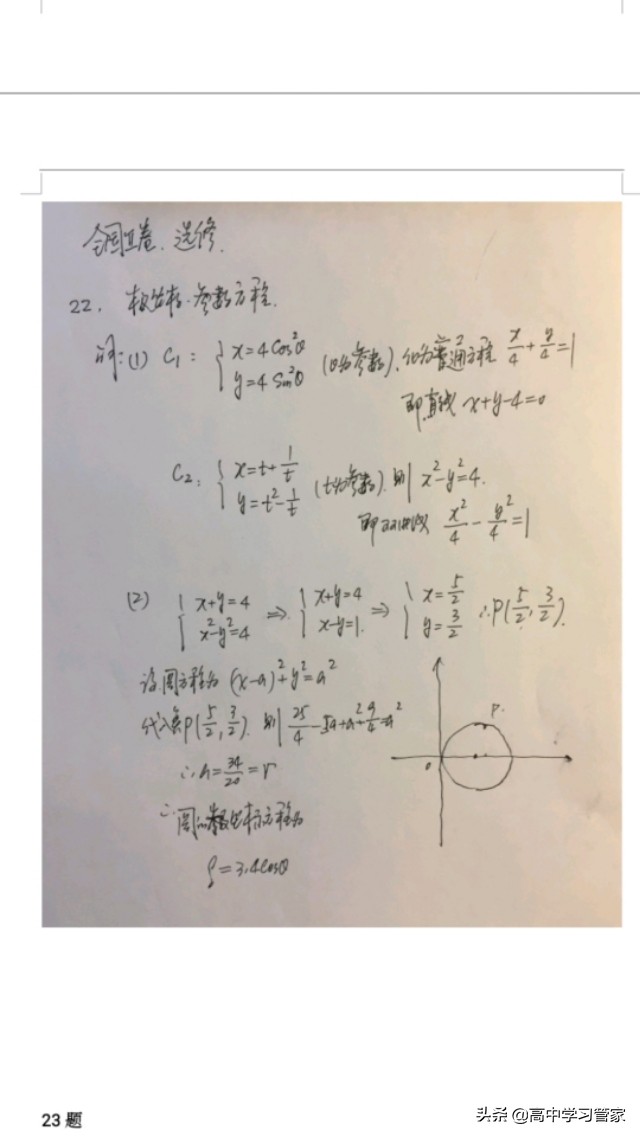 全国Ⅱ卷. 选修.
22. 极坐标·参数方程.
解:(1) C₁: { x=4cos²θ y=4sin²θ (θ为参数). 化为普通方程 x/4+y/4=1
即直线 x+y-4=0
C₂: { x=t+1/t y=t²-1/t (t为参数). 则 x²-y²=4.
即双曲线 x²/4-y²/4=1
(2) { x+y=4 x²-y²=4 ⇒ { x+y=4 x-y=1. ⇒ { x=5/2 y=3/2 ∴P(5/2, 3/2).
设圆方程为 (x-a)²+y²=a²
代入点P(5/2, 3/2). 则 25/4-5a+a²+9/4=a²
∴a=34/20=r
∴圆的极坐标方程为
ρ=3.4cosθ
P.
0
23 题
头条 @高中学习管家